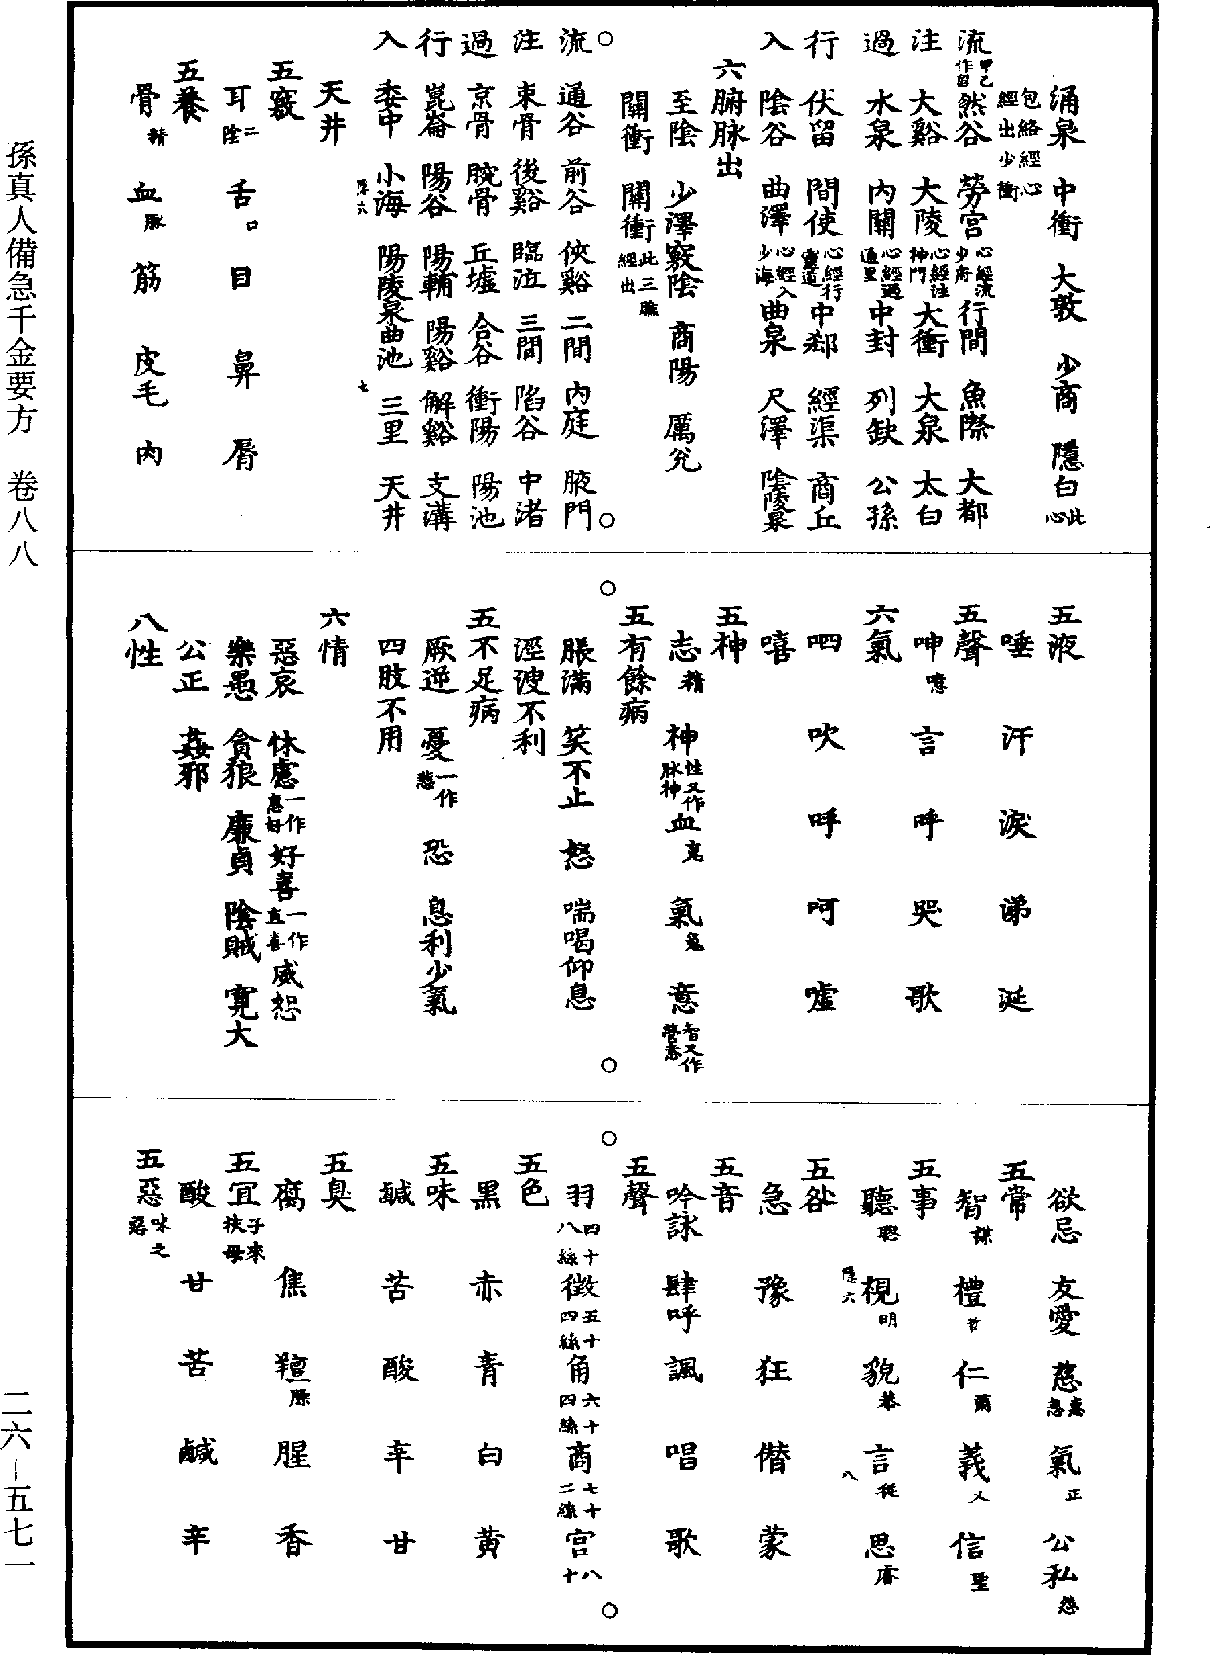 涌泉 中衝 大敦 少商 隱白此心
包絡經心經出少衝
流甲乙作留 然谷 勞宮心經流少府 行間 魚際 大都
注 大谿 大陵心經注神門 大衝 大泉 太白
過 水泉 內關心經過通里 中封 列缺 公孫
行 伏留 間使心經行靈道 中郄 經渠 商丘
入 陰谷 曲澤心經入少海 曲泉 尺澤 陰陵泉
六腑脉出
至陰 少澤 竅陰 商陽 厲兌
關衝 關衝此三膲經出
流 通谷 前谷 俠谿 二間 內庭 腋門
注 束骨 後谿 臨泣 三間 陷谷 中渚
過 京骨 腕骨 丘墟 合谷 衝陽 陽池
行 崑崙 陽谷 陽輔 陽谿 解谿 支溝
入 委中 小海 陽陵泉 曲池 三里 天井
隱六 七
天井
五竅
耳二陰 舌口 目 鼻 脣
五養
骨精 血脉 筋 皮毛 肉
五液
唾 汗 淚 涕 涎
五聲
呻噫 言 呼 哭 歌
六氣
呬 吹 呼 呵 噓
嘻
五神
志精 神性又作脉神 血䰟 氣魄 意智又作營意
五有餘病
脹滿 笑不止 怒 喘喝仰息
涇溲不利
五不足病
厥逆 憂一作悲 恐 息利少氣
四肢不用
六情
惡哀 休慮一作惠好 好喜一作直喜 威恕
樂愚 貪狼 廉貞 陰賊 寬大
公正 姦邪
八性
欲忌 友愛 慈惠急 氣正 公私怨
五常
智謀 禮哲 仁肅 義乂 信聖
五事
聽聰 視明 貌恭 言從 思睿
隱六 八
五咎
急 豫 狂 僭 蒙
五音
吟詠 肆呼 諷 唱 歌
五聲
羽四十八絲 徵五十四絲 角六十四絲 商七十二絲 宮八十
五色
黑 赤 青 白 黃
五味
鹹 苦 酸 辛 甘
五臭
腐 焦 羶一臊 腥 香
五宜子來扶母
酸 甘 苦 鹹 辛
五惡味之惡
孫真人備急千金要方 卷八八
二六－五七一